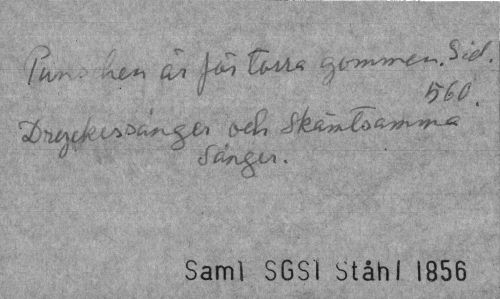 Punschen är för torra gommen. Sid.
560.
Dryckessånger och Skämtsamma
Sånger.
Saml SGS1 Ståhl 1856